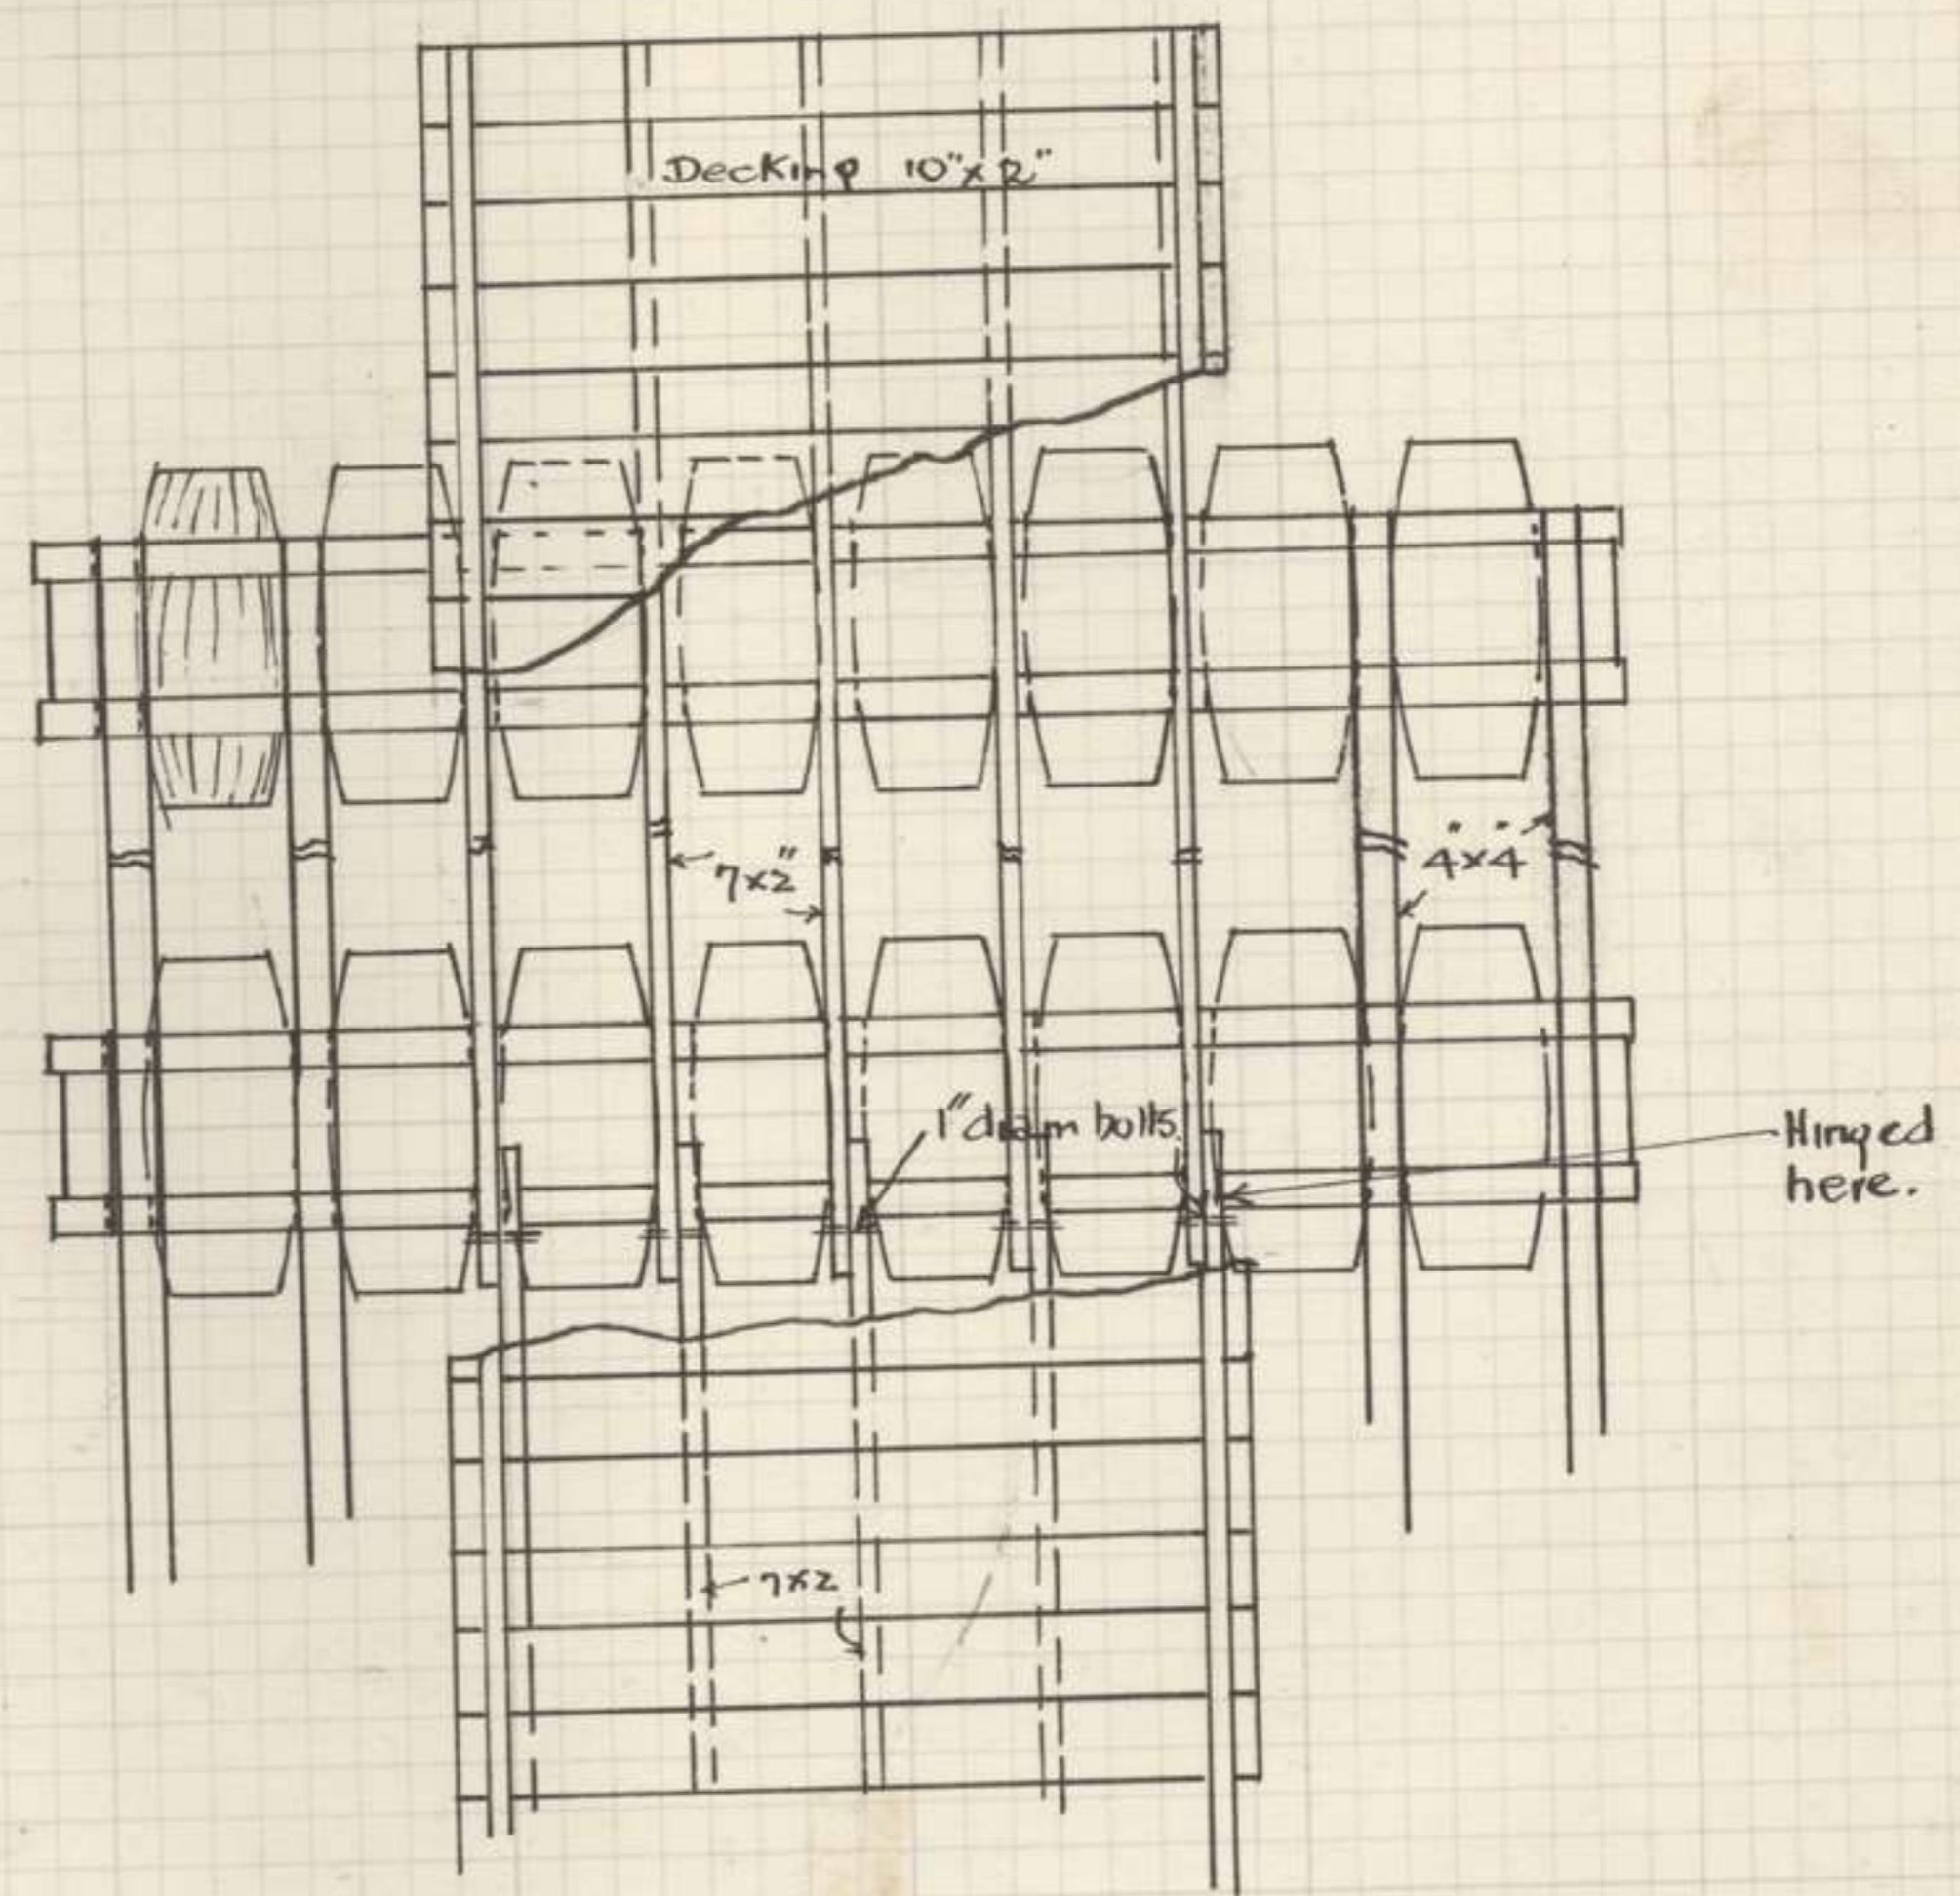 Decking 10" x 2"
7x2"
4"x4"
1" diam bolts.
Hinged
here.
7x2